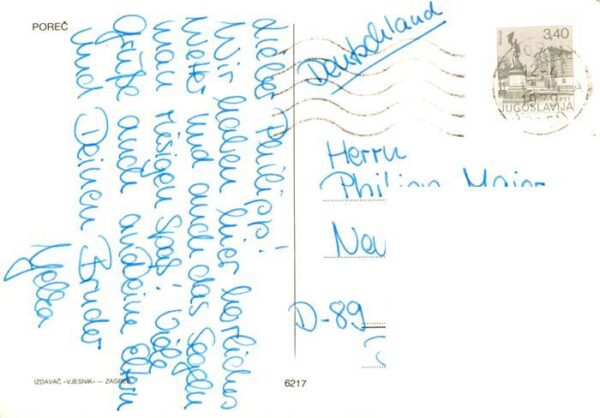 POREČ
Lieber Philipp!
Wir haben hier herrliches
Wetter und auch das Segeln
riesigen Spaß! Viele
Grüße auch an Deine Eltern
und Deinen Bruder
Deutschland
3,40
JUGOSLAVIJA
Herrn
Philipp
Neu
D-89
IZDAVAČ «VJESNIK» — ZAGREB
6217